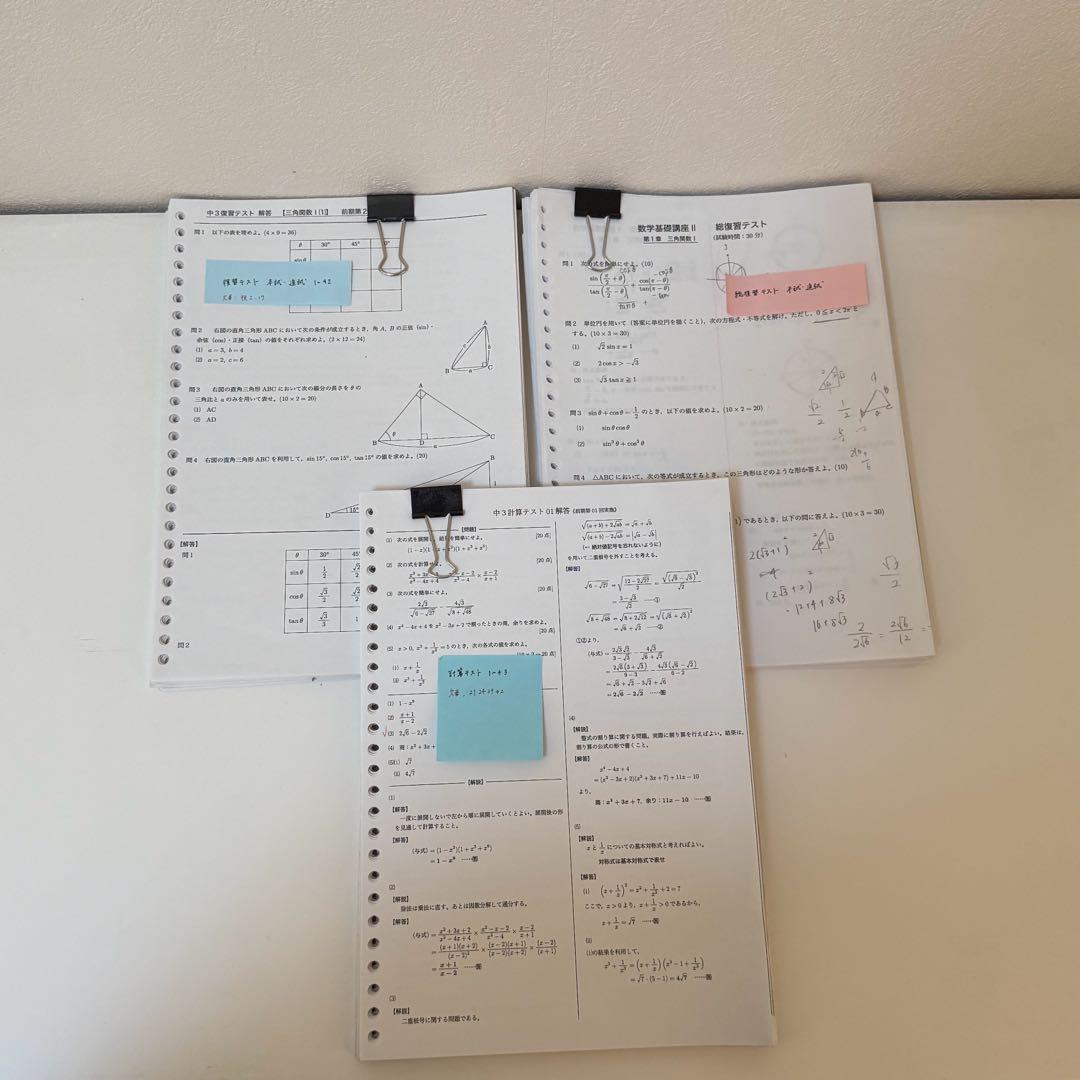 中3復習テスト 解答 【三角関数 I (1)】 前期第2
問1 以下の表を埋めよ。(4 × 9 = 36)
θ 30° 45°
sin θ
復習テスト 本試・追試 1~42
問2 右図の直角三角形 ABC において次の条件が成立するとき，角 A, B の正弦 (sin)・
余弦 (cos)・正接 (tan) の値をそれぞれ求めよ。(2 × 12 = 24)
(1) a = 3, b = 4
(2) a = 2, c = 6
A
B a C
問3 右図の直角三角形 ABC において次の線分の長さを θ の
三角比と a のみを用いて表せ。(10 × 2 = 20)
(1) AC
(2) AD
A
B θ D C
a
問4 右図の直角三角形 ABC を利用して，sin 15°, cos 15°, tan 15° の値を求めよ。(20)
B
1
D 15°
【解答】
問1
θ 30° 45°
sin θ 1/2 √2/2
cos θ √3/2 √2/2
tan θ √3/3 1
問2
数学基礎講座 II 総復習テスト
第1章 三角関数 I (試験時間：30分)
問1 次の式を簡単にせよ。(10)
sin(π/2 + θ) cos(π − θ)
tan(π/2 − θ) tan(π − θ)
cosθ −cosθ
総復習テスト 本試・追試
問2 単位円を用いて (答案に単位円を描くこと)，次の方程式・不等式を解け。ただし，0 ≦ x < 2π と
する。(10 × 3 = 30)
(1) √2 sin x = 1
(2) 2 cos x > −√3
(3) √3 tan x ≧ 1
問3 sin θ + cos θ = 1/2 のとき，以下の値を求めよ。(10 × 2 = 20)
(1) sin θ cos θ
(2) sin³ θ + cos³ θ
問4 △ABC において，次の等式が成立するとき，この三角形はどのような形か答えよ。(10)
) であるとき，以下の問に答えよ。(10 × 3 = 30)
√2/2 1/2
2(√3+1)²
(2√3+2)²
12+4+8√3
16+8√3
√3/2
2/2√6 = 2√6/12 =
中3計算テスト01解答 (前期第01回実施)
【問題】
(1) 次の式を展開し，結果を簡単にせよ。 [20点]
(2) 次の式を計算せよ。 [20点]
(3) 次の式を簡単にせよ。 [20点]
2√3/(√6 − √27) − 4√3/(√8 + √48)
(4) x⁴ − 4x + 4 を x² − 3x + 2 で割ったときの商，余りを求めよ。
[20点]
(5) x > 0, x² + 1/x² = 5 のとき，次の各式の値を求めよ。
(i) x + 1/x
(ii) x³ + 1/x³
計算テスト 1~43
欠番：21 24 29 42
(1) 1 − x⁹
(2) (x + 1)/(x − 2)
(3) 2√6 − 2√2
(4) 商：x² + 3x +
(5)(i) √7
(ii) 4√7
【解説】
(1)
【解答】
一度に展開しないで左から順に展開していくとよい。展開後の形
を見通して計算すること。
【解答】
(与式) = (1 − x³)(1 + x³ + x⁶)
= 1 − x⁹ ……答
(2)
【解説】
除法は乗法に直す。あとは因数分解して通分する。
【解答】
(与式) = (x² + 3x + 2)/(x² − 4x + 4) × (x² − x − 2)/(x² − 4) × (x − 2)/(x + 1)
= (x + 1)(x + 2)/(x − 2)² × (x − 2)(x + 1)/(x − 2)(x + 2) × (x − 2)/(x + 1)
= (x + 1)/(x − 2) ……答
(3)
【解説】
二重根号に関する問題である。
√((a + b) + 2√ab) = √a + √b
√((a + b) − 2√ab) = |√a − √b|
(← 絶対値記号を忘れないように)
を用いて二重根号を外すことを考える。
【解答】
√(6 − √27) = √((12 − 2√27)/2) = √((√9 − √3)²/2)
= (3 − √3)/√2 ……①
√(8 + √48) = √(8 + 2√12) = √((√6 + √2)²)
= √6 + √2 ……②
①②より，
(与式) = 2√3√2/(3 − √3) − 4√3/(√6 + √2)
= 2√6(3 + √3)/(9 − 3) − 4√3(√6 − √2)/(6 − 2)
= √6 + √2 − 3√2 + √6
= 2√6 − 2√2 ……答
(4)
【解説】
整式の割り算に関する問題。実際に割り算を行えばよい。結果は，
割り算の公式の形で書くこと。
【解答】
x⁴ − 4x + 4
= (x² − 3x + 2)(x² + 3x + 7) + 11x − 10
より，
商：x² + 3x + 7, 余り：11x − 10 ……答
(5)
【解説】
x と 1/x についての基本対称式と考えればよい。
対称式は基本対称式で表せ
【解答】
(i) (x + 1/x)² = x² + 1/x² + 2 = 7
ここで，x > 0 より，x + 1/x > 0 であるから，
x + 1/x = √7 ……答
(ii)
(i)の結果を利用して，
x³ + 1/x³ = (x + 1/x)(x² − 1 + 1/x²)
= √7 · (5 − 1) = 4√7 ……答